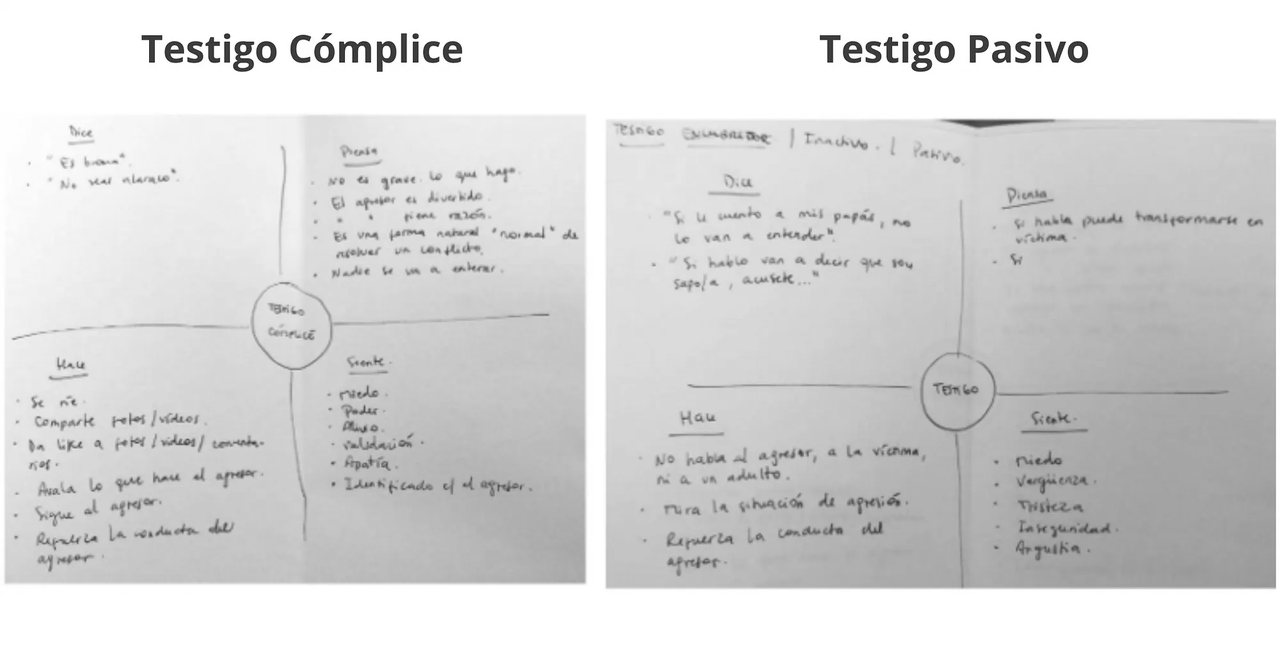 Testigo Cómplice
Dice
• "Es broma".
• "No seas alaraco".
Piensa
• No es grave lo que hago.
• El agresor es divertido.
• " " tiene razón.
• Es una forma natural "normal" de
resolver un conflicto.
• Nadie se va a enterar.
TESTIGO
CÓMPLICE
Hace
• Se ríe.
• Comparte fotos/videos.
• Da like a fotos/videos/comenta-
rios.
• Avala lo que hace el agresor.
• Sigue al agresor.
• Refuerza la conducta del
agresor.
Siente.
• Miedo.
• Poder.
• Alivio.
• Validación.
• Apatía.
• Identificado c/ el agresor.
Testigo Pasivo
TESTIGO ENCUBRIDOR / Inactivo. / Pasivo.
Dice
• "Si le cuento a mis papás, no
lo van a entender".
• "Si hablo van a decir que soy
sapo/a, acusete..."
Piensa
• Si habla puede transformarse en
víctima.
• Si
TESTIGO
Hace
• No habla al agresor, a la víctima,
ni a un adulto.
• Mira la situación de agresión.
• Refuerza la conducta del
agresor.
Siente.
• Miedo
• Vergüenza.
• Tristeza
• Inseguridad.
• Angustia.